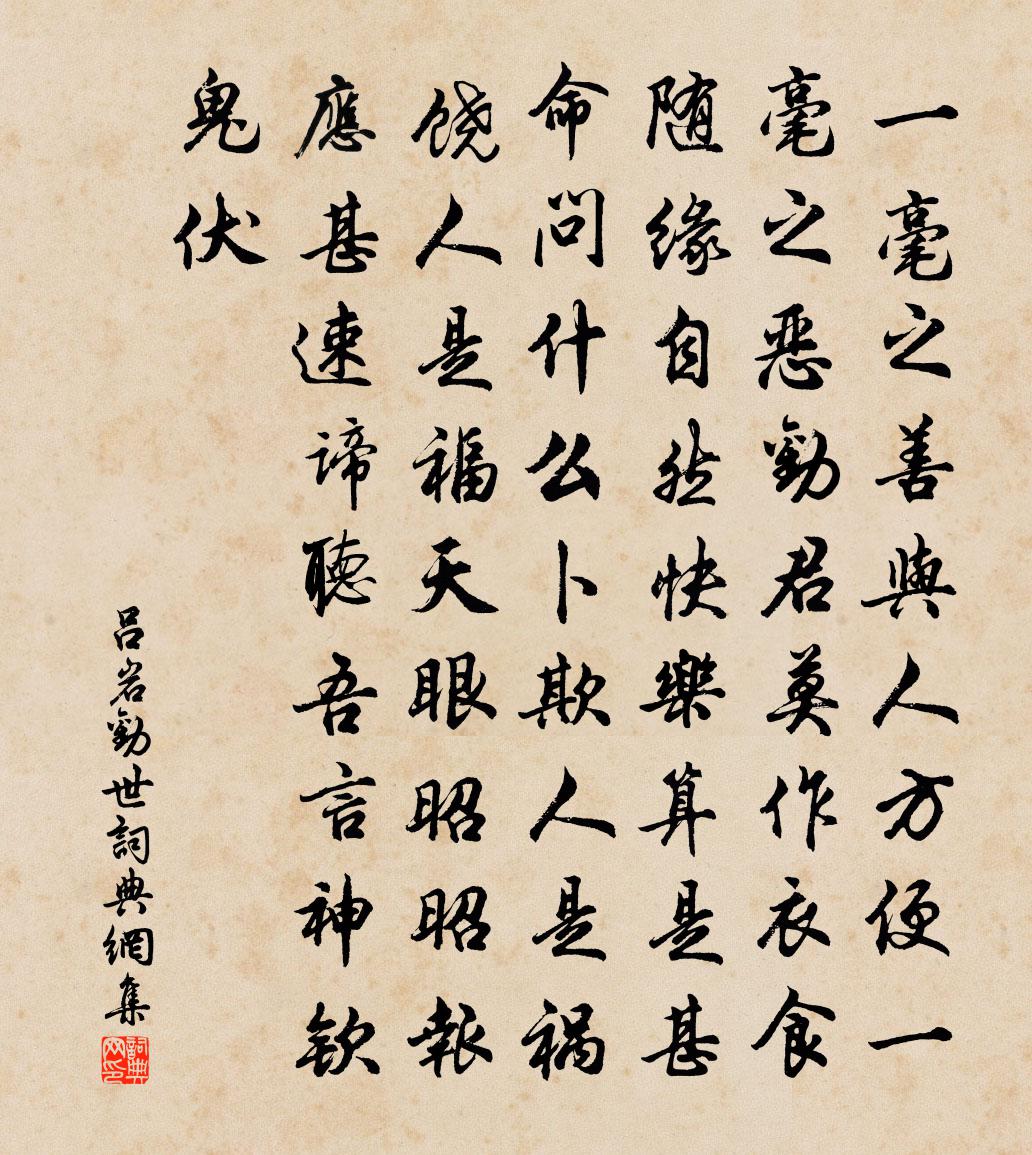 一毫之善與人方便一
毫之惡勸君莫作衣食
随緣自然快樂算是甚
命問什么卜欺人是禍
饶人是福天眼昭昭報
應甚速諦聽吾言神欽
鬼伏
吕岩勸世詞典網集
詞典网印